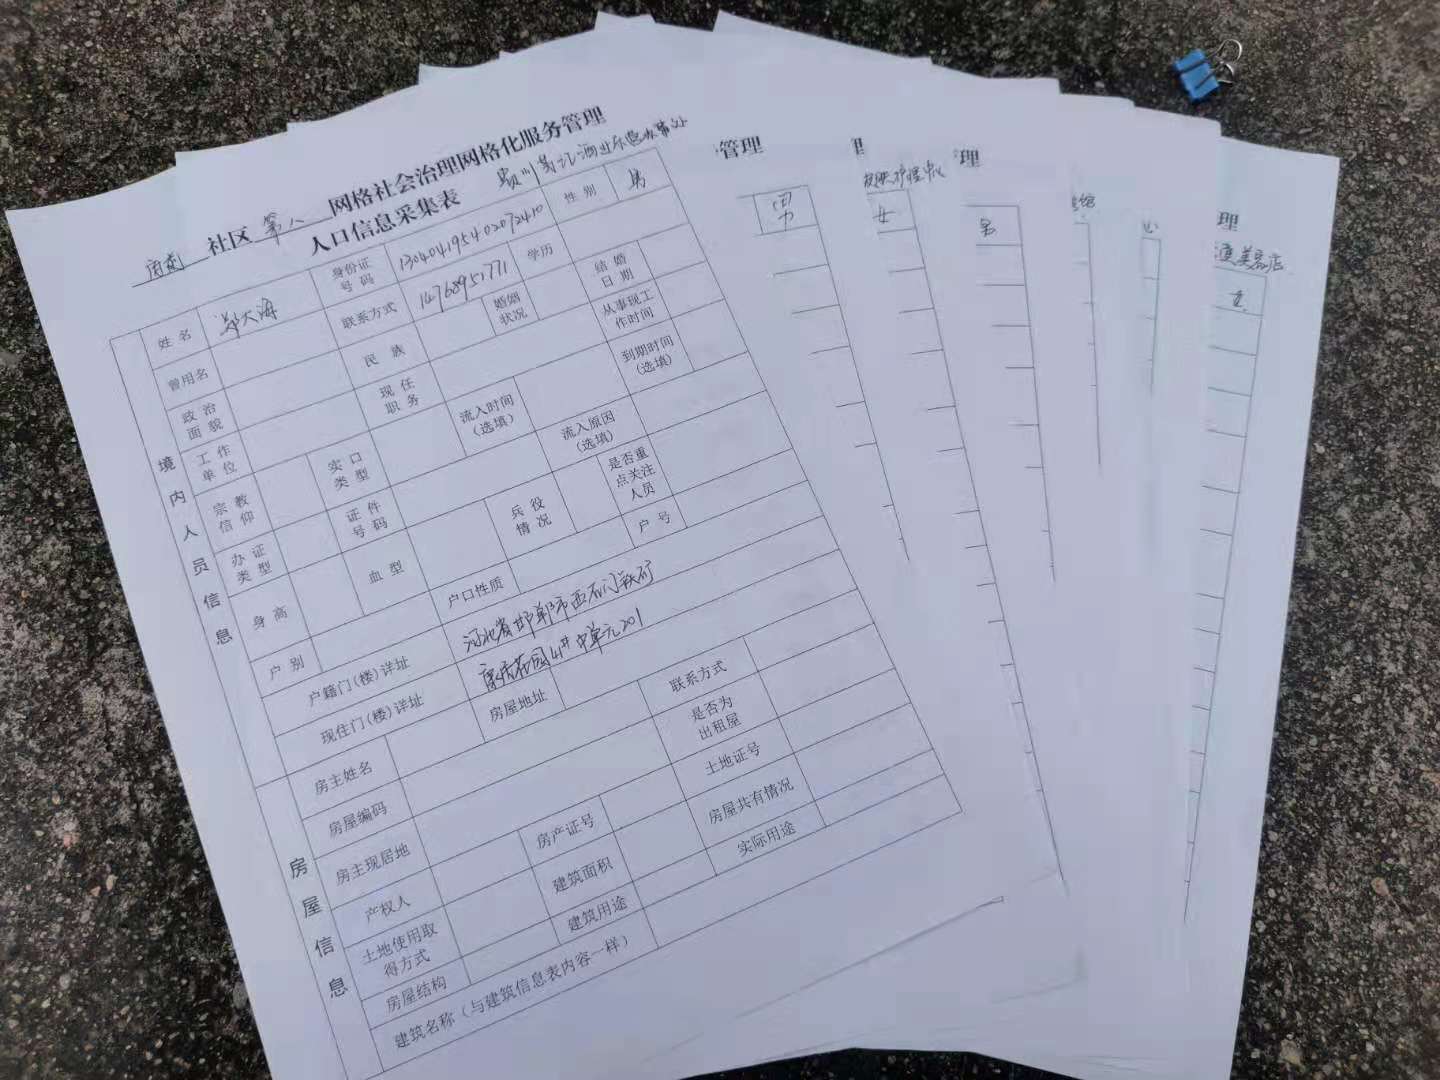 网格社会治理网格化服务管理
社区 第八
人口信息采集表
姓 名
身份证号 码
130404195402072410
性 别
男
曾用名
联系方式
14768951771
学历
政治面貌
民 族
婚姻状况
结婚日期
工作单位
现任职务
从事现工作时间
宗教信仰
实口类型
流入时间(选填)
到期时间(选填)
办证类型
证件号码
流入原因(选填)
身 高
血 型
兵役情况
是否重点关注人员
户 别
户口性质
户 号
户籍门(楼)详址
河北省邯郸市西石门铁矿
现住门(楼)详址
花园4#中单元201
境内人员信息
房主姓名
房屋地址
联系方式
房屋编码
是否为出租屋
房主现居地
房产证号
土地证号
产权人
建筑面积
房屋共有情况
土地使用取得方式
建筑用途
实际用途
房屋结构
建筑名称(与建筑信息表内容一样)
房屋信息
管理
男
理
女
理
男
理
美容店
女